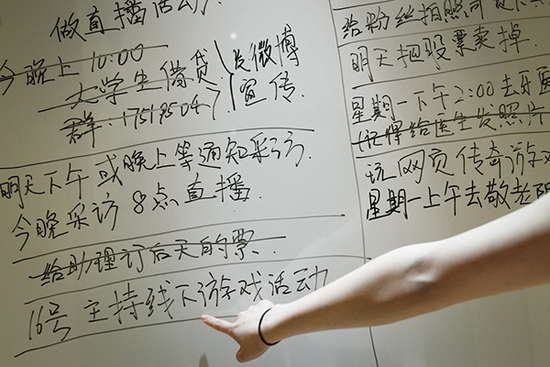 做直播活动.
今晚上 10:00
大学生借贷
群:1751950
发微博
宣传.
明天下午或晚上等通知采访.
今晚采访 8点直播
给助理订后天的票
16号 主持线下游戏活动
给粉丝拍照
明天把股票卖掉.
星期一下午2:00去牙医
(记得给医生发照片
玩网页传奇游戏
星期一上午去敬老院